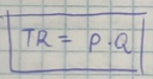 TR = P · Q